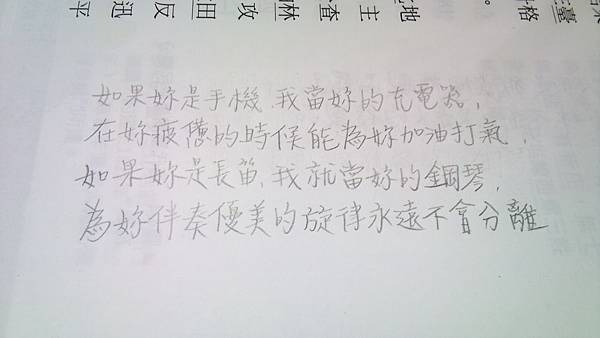 如果妳是手機,我當妳的充電器,
在妳疲憊的時候能為妳加油打氣,
如果妳是長笛,我就當妳的鋼琴,
為妳伴奏優美的旋律永遠不會分離
平
迅
反
田
攻
林
查
主
地
臺
格
。